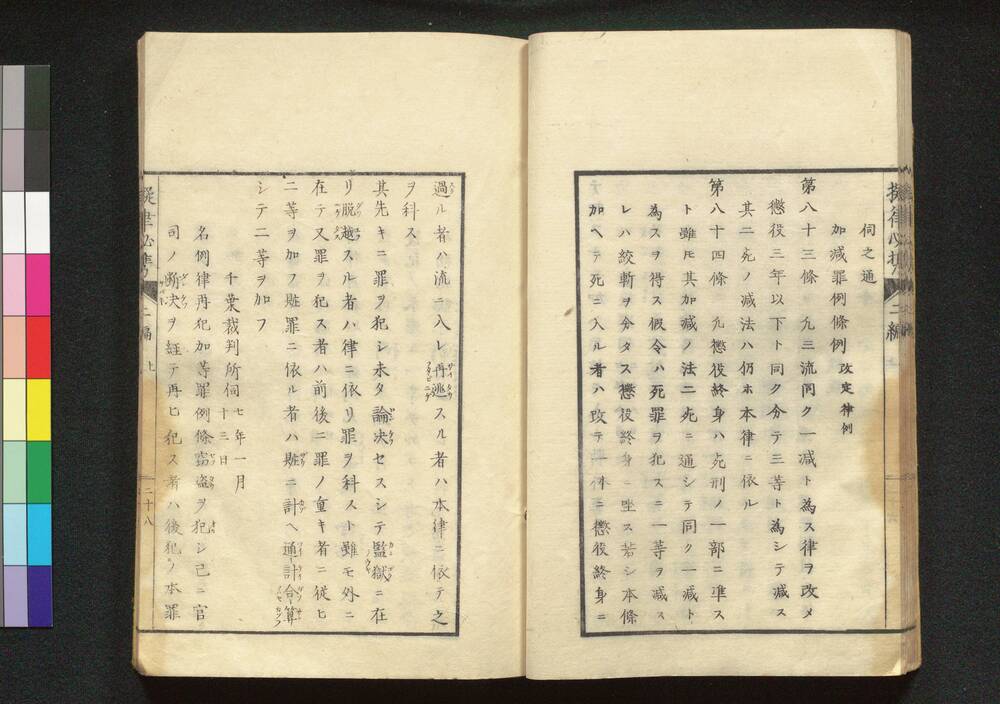 擬律必携 二編 上
伺之通
加減罪例條例 改定律例
第八十三條 凡三流同ク一減ト為ス律ヲ改メ
懲役三年以下ト同ク分テ三等ト為シテ減ス
其二死ノ減法ハ仍ホ本律ニ依ル
第八十四條 凡懲役終身ハ死刑ノ一部ニ準ス
ト雖𪜈其加減ノ法二死ニ通シテ同ク一減ト
為スヲ得ス假令ハ死罪ヲ犯スニ一等ヲ減ス
レハ絞斬ヲ分タス懲役終身ニ坐ス若シ本條
加ヘテ死ニ入ル者ハ改テ一体ニ懲役終身ニ
過ル者ハ流ニ入レ再逃スル者ハ本律ニ依テ之
ヲ科ス
其先キニ罪ヲ犯シ未タ論決セスシテ監獄ニ在
リ脱越スル者ハ律ニ依リ罪ヲ科スト雖モ外ニ
在テ又罪ヲ犯ス者ハ前後二罪ノ重キ者ニ従ヒ
二等ヲ加フ賍罪ニ依ル者ハ賍ニ計ヘ通計合算
シテ二等ヲ加フ
千葉裁判所伺 七年一月十三日
名例律再犯加等罪例條竊盗ヲ犯シ已ニ官
司ノ断決ヲ経テ再ヒ犯ス者ハ後犯ノ本罪
擬律必携 二編 上 二十八